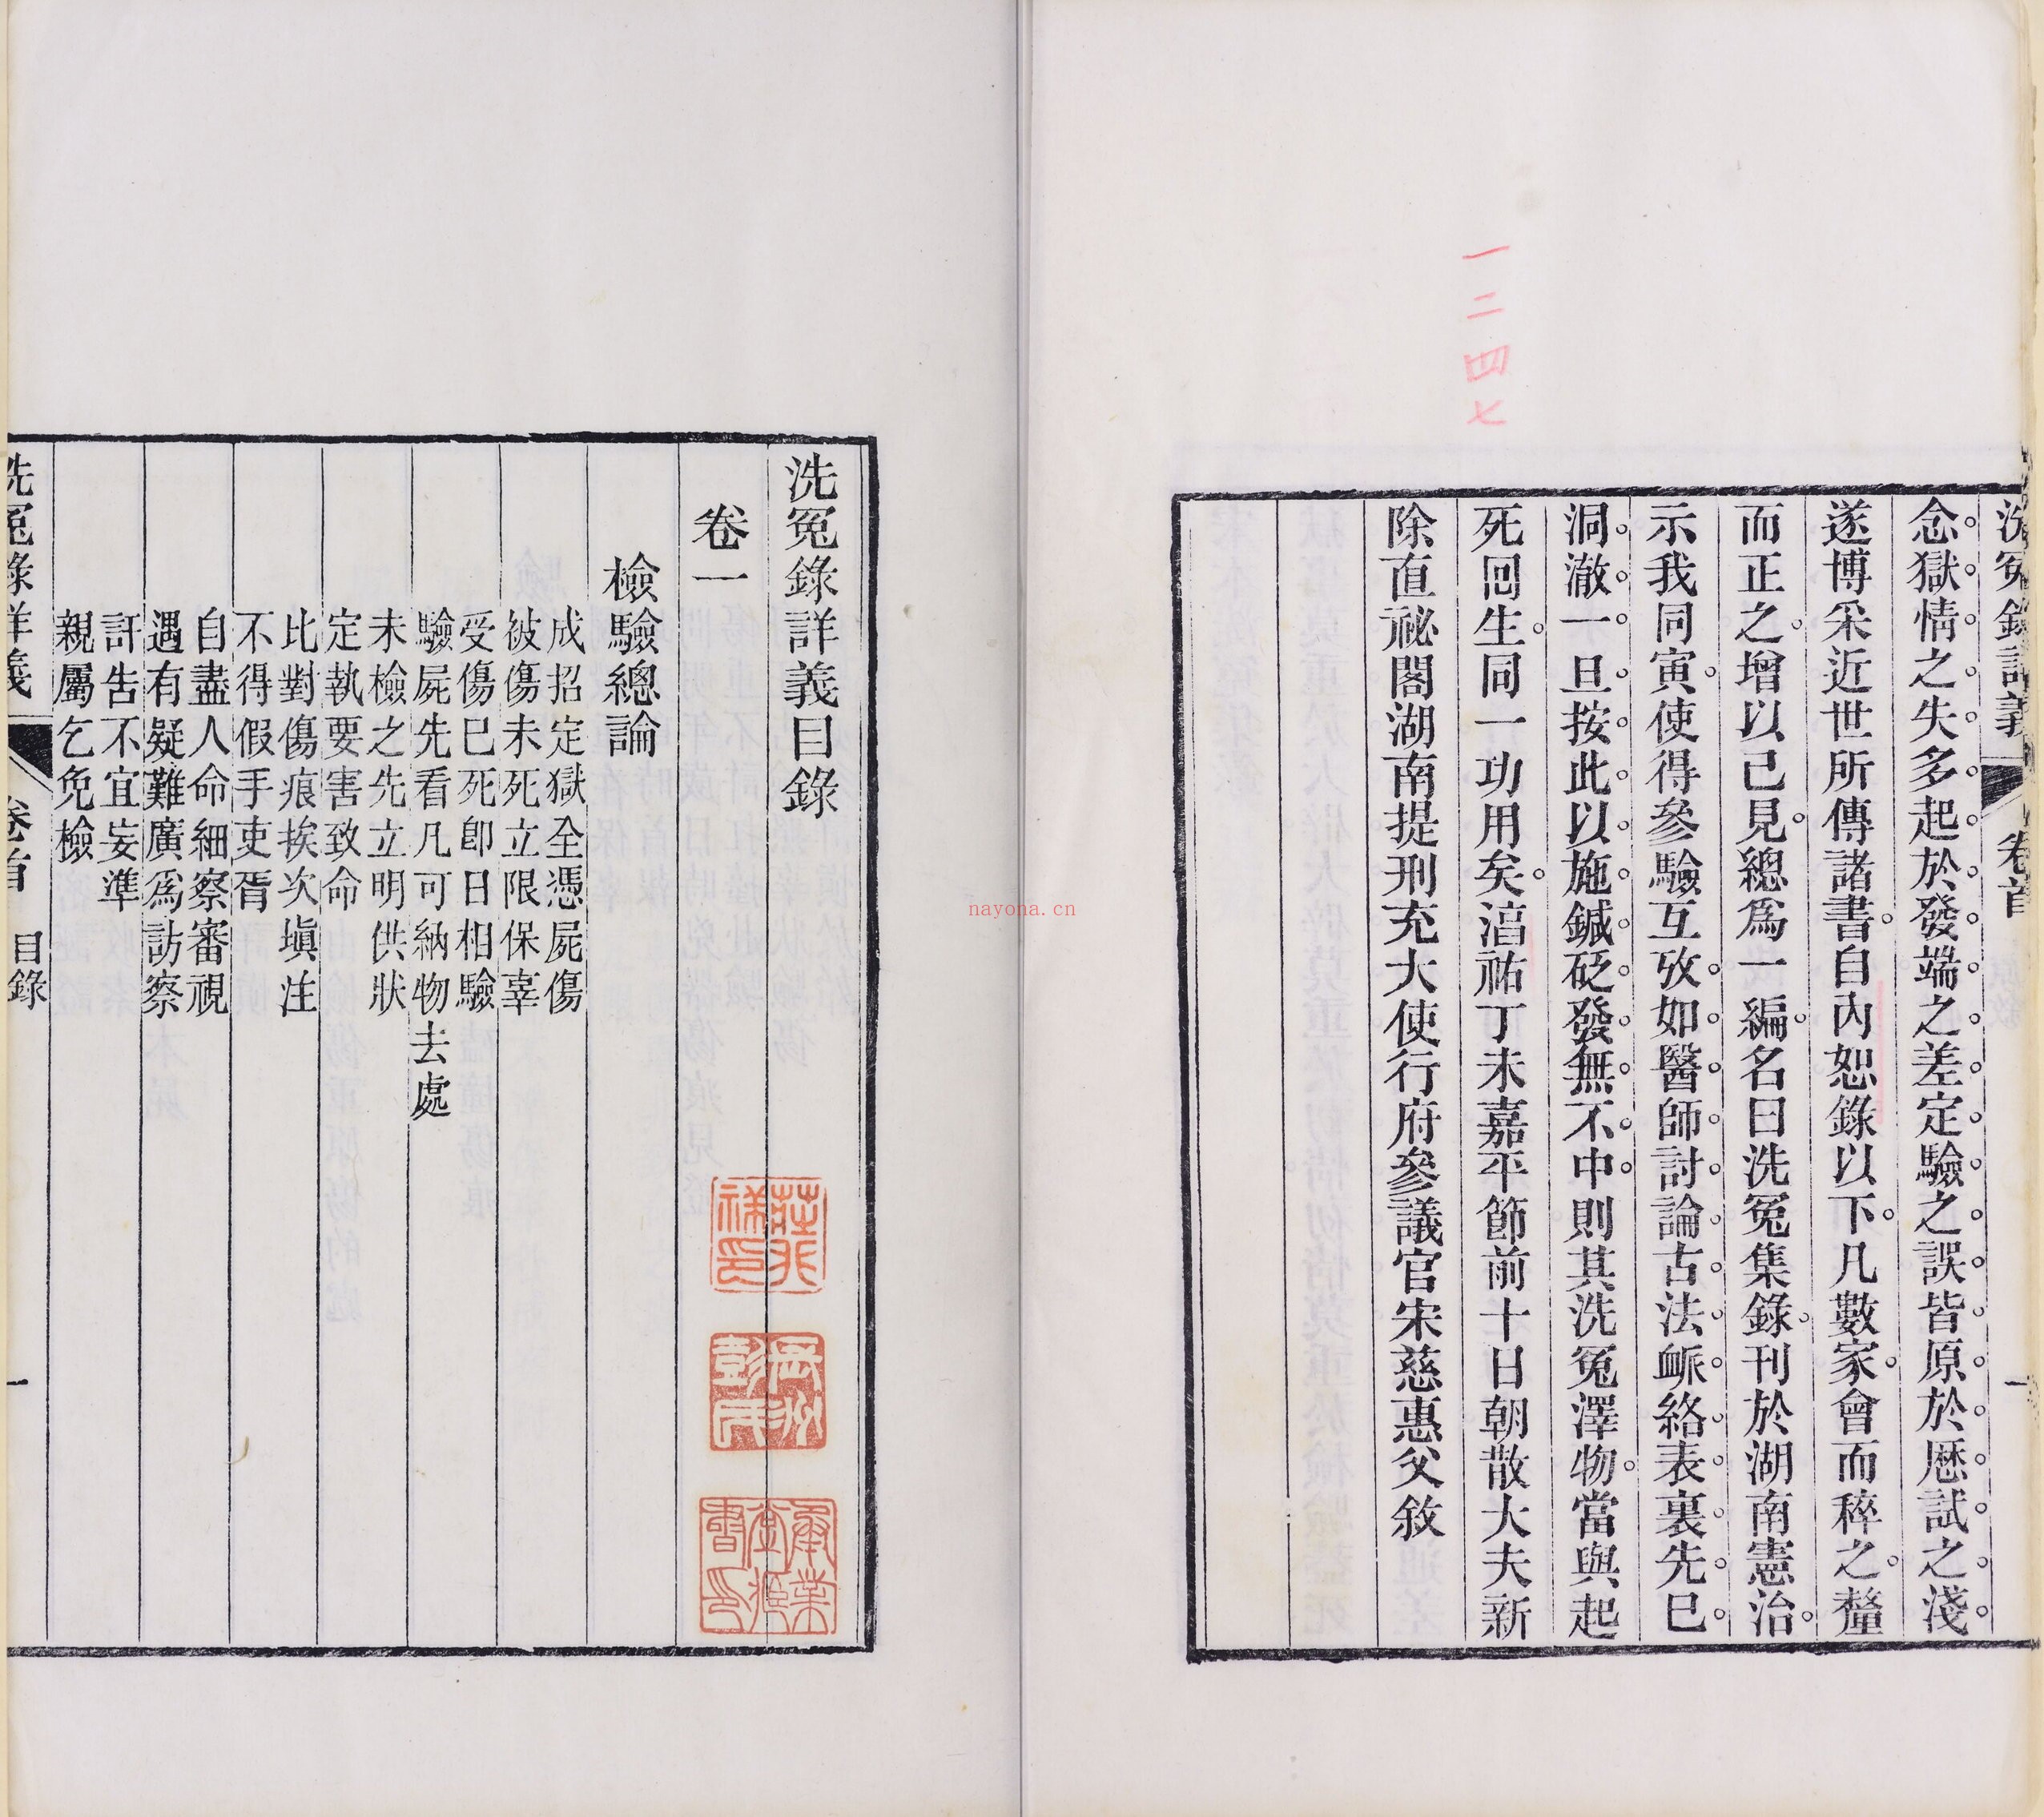 洗冤錄詳義
卷首
一
念獄情之失多起於發端之差定驗之誤皆原於歷試之淺
遂博采近世所傳諸書自內恕錄以下凡數家會而稡之釐
而正之增以己見總爲一編名曰洗冤集錄刊於湖南憲治
示我同寅使得參驗互攷如醫師討論古法衇絡表裏先已
洞澈一旦按此以施鍼砭發無不中則其洗冤澤物當與起
死回生同一功用矣湻祐丁未嘉平節前十日朝散大夫新
除直祕閣湖南提刑充大使行府參議官宋慈惠父敘
一二四七
洗冤錄詳義目錄
卷一
檢驗總論
成招定獄全憑屍傷
被傷未死立限保辜
受傷已死卽日相驗
驗屍先看凡可納物去處
未檢之先立明供狀
定執要害致命
比對傷痕挨次塡注
不得假手吏胥
自盡人命細察審視
遇有疑難廣爲訪察
訐告不宜妄準
親屬乞免檢
洗冤錄詳義
卷首
目錄
一
nayona.cn